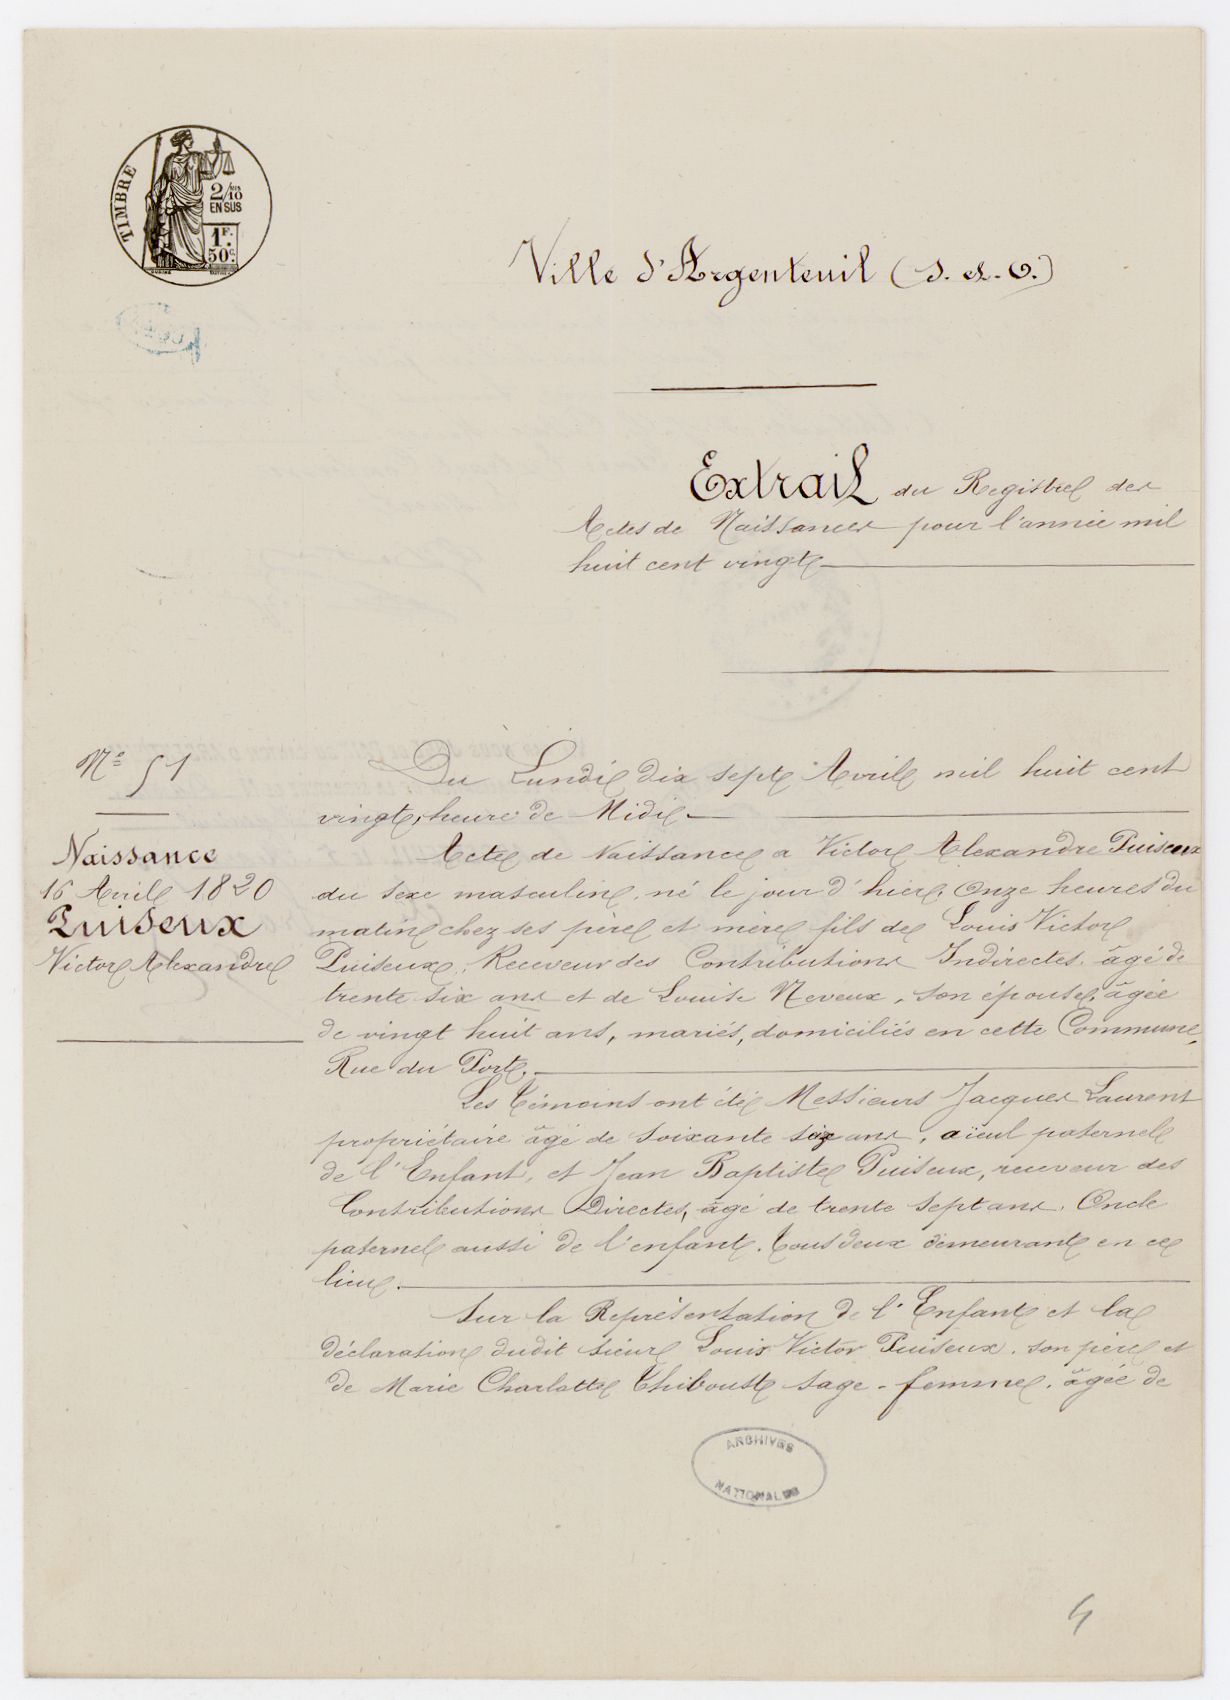 TIMBRE
2/10
EN SUS
1F.
50c.
Ville d'Argenteuil (S. et. O.)
Extrait du Registre des
Actes de Naissances pour l'année mil
huit cent vingt
No 51
Naissance
16 Avril 1820
Puiseux
Victor Alexandre
Du Lundi dix sept Avril mil huit cent
vingt, heure de Midi.
Acte de Naissance a Victor Alexandre Puiseux
du sexe masculin, né le jour d'hier, Onze heures du
matin chez ses père et mère fils de Louis Victor
Puiseux, Receveur des Contributions Indirectes, âgé de
trente six ans et de Louise Neveux, son épouse, âgée
de vingt huit ans, mariés, domiciliés en cette Commune,
Rue du Port.
Les témoins ont été Messieurs Jacques Laurent
propriétaire âgé de soixante six ans, aïeul paternel
de l'Enfant, et Jean Baptiste Puiseux, receveur des
Contributions Directes, âgé de trente sept ans, Oncle
paternel aussi de l'enfant. Tous deux demeurant en ce
lieu.
Sur la Représentation de l'Enfant et la
déclaration dudit sieur Louis Victor Puiseux, son père et
de Marie Charlotte Thiboust sage-femme, âgée de
ARCHIVES
NATIONALES